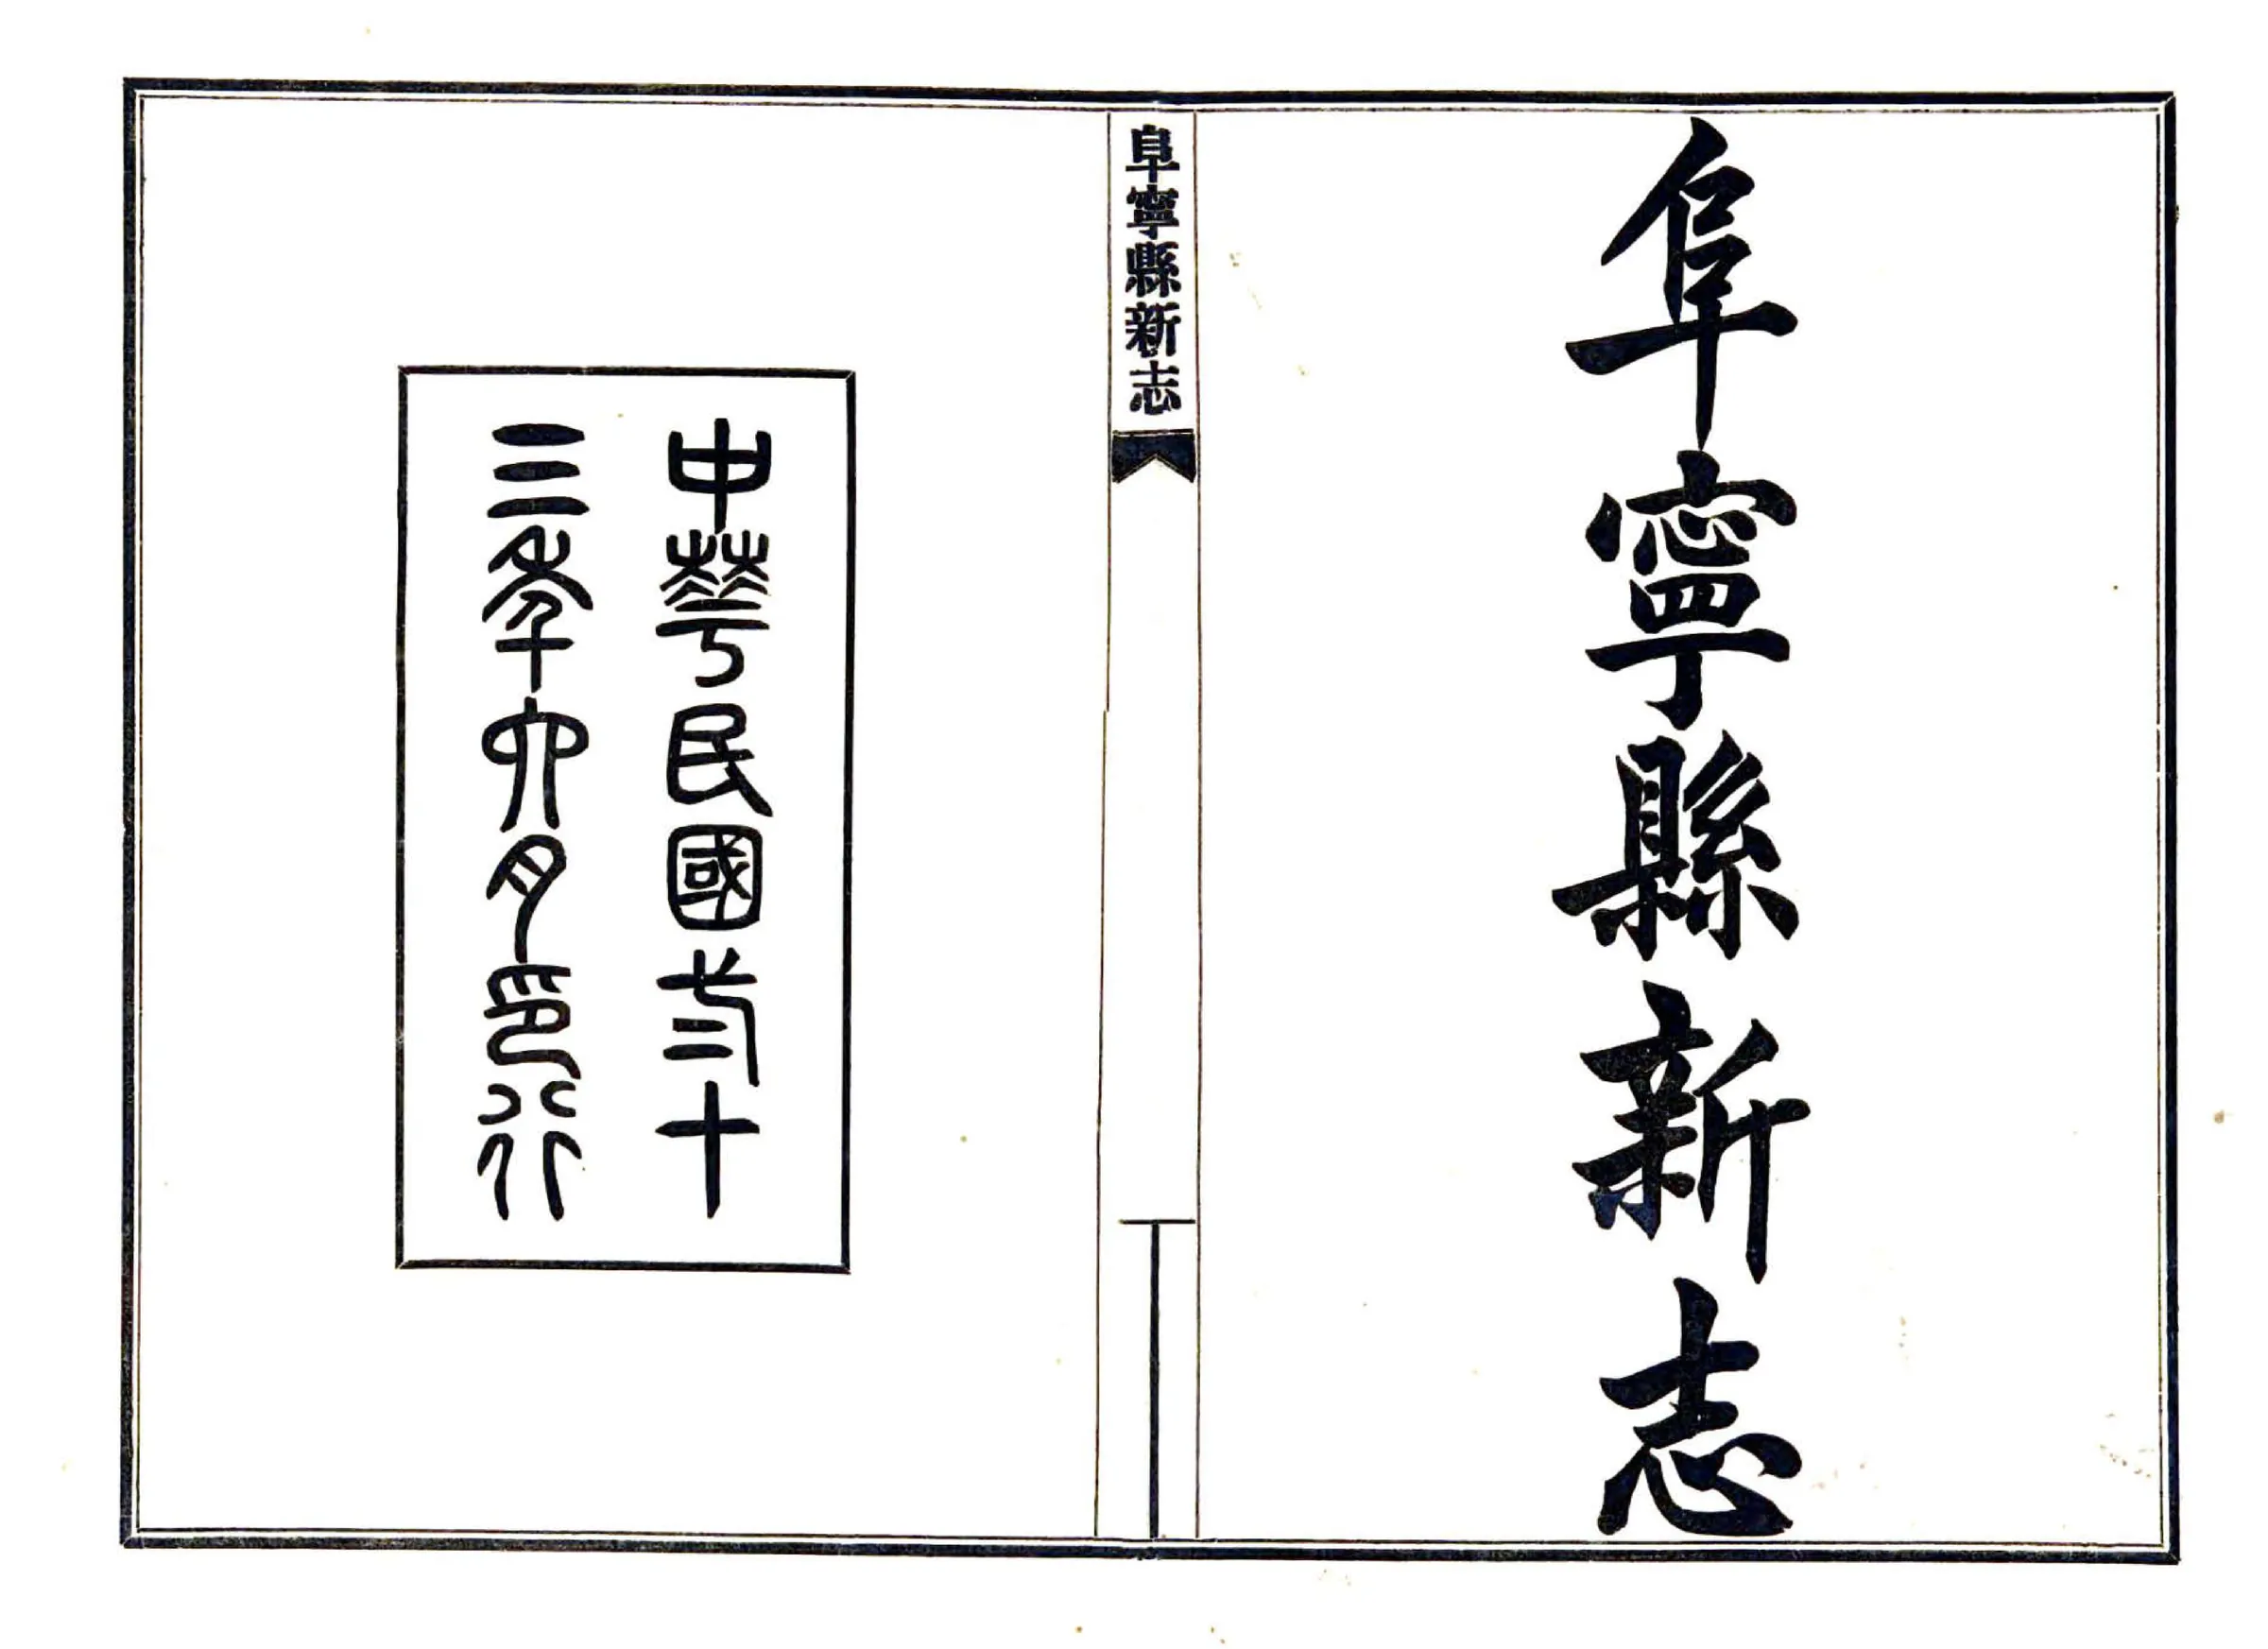 阜寧縣新志
阜寧縣新志
中華民國弍十
三年六月印行